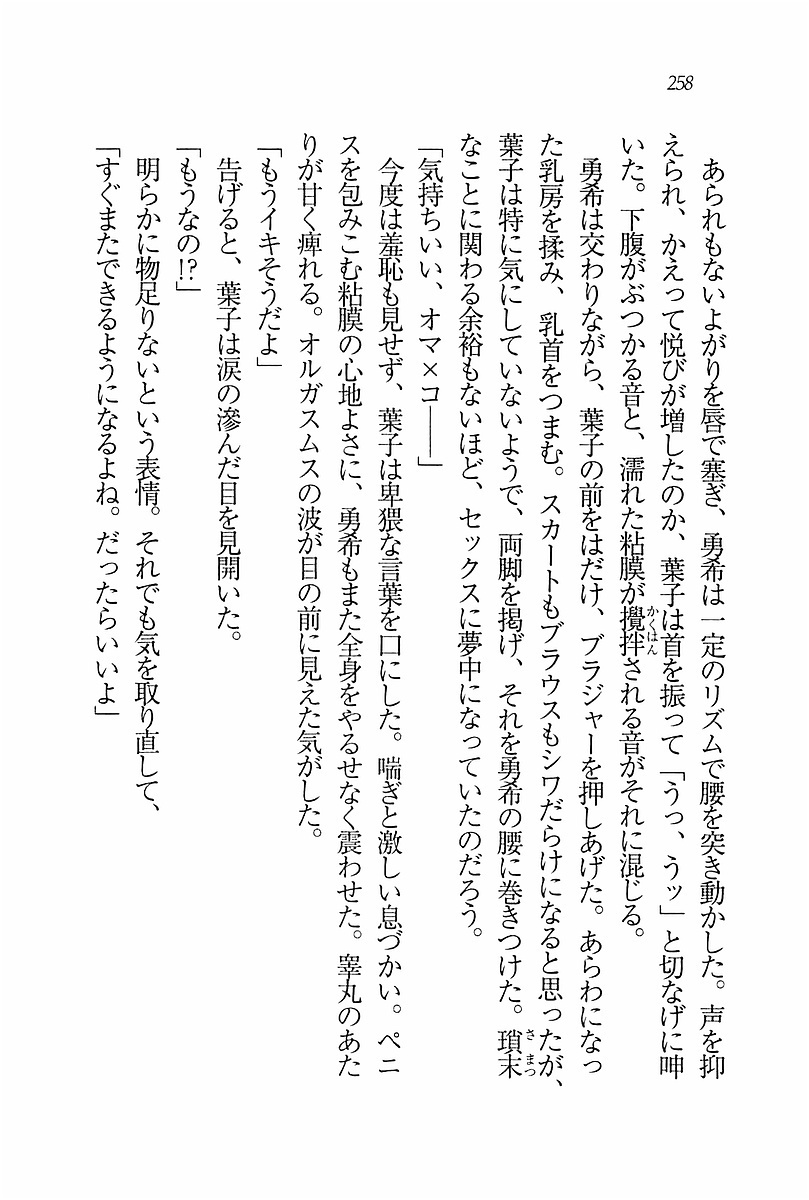 258
あられもないよがりを唇で塞ぎ、勇希は一定のリズムで腰を突き動かした。声を抑
えられ、かえって悦びが増したのか、葉子は首を振って「うっ、うッ」と切なげに呻
いた。下腹がぶつかる音と、濡れた粘膜が攪拌される音がそれに混じる。
勇希は交わりながら、葉子の前をはだけ、ブラジャーを押しあげた。あらわになっ
た乳房を揉み、乳首をつまむ。スカートもブラウスもシワだらけになると思ったが、
葉子は特に気にしていないようで、両脚を掲げ、それを勇希の腰に巻きつけた。瑣末
なことに関わる余裕もないほど、セックスに夢中になっていたのだろう。
「気持ちいい、オマ×コ――」
今度は羞恥も見せず、葉子は卑猥な言葉を口にした。喘ぎと激しい息づかい。ペニ
スを包みこむ粘膜の心地よさに、勇希もまた全身をやるせなく震わせた。睾丸のあた
りが甘く痺れる。オルガスムスの波が目の前に見えた気がした。
「もうイキそうだよ」
告げると、葉子は涙の滲んだ目を見開いた。
「もうなの!?」
明らかに物足りないという表情。それでも気を取り直して、
「すぐまたできるようになるよね。だったらいいよ」